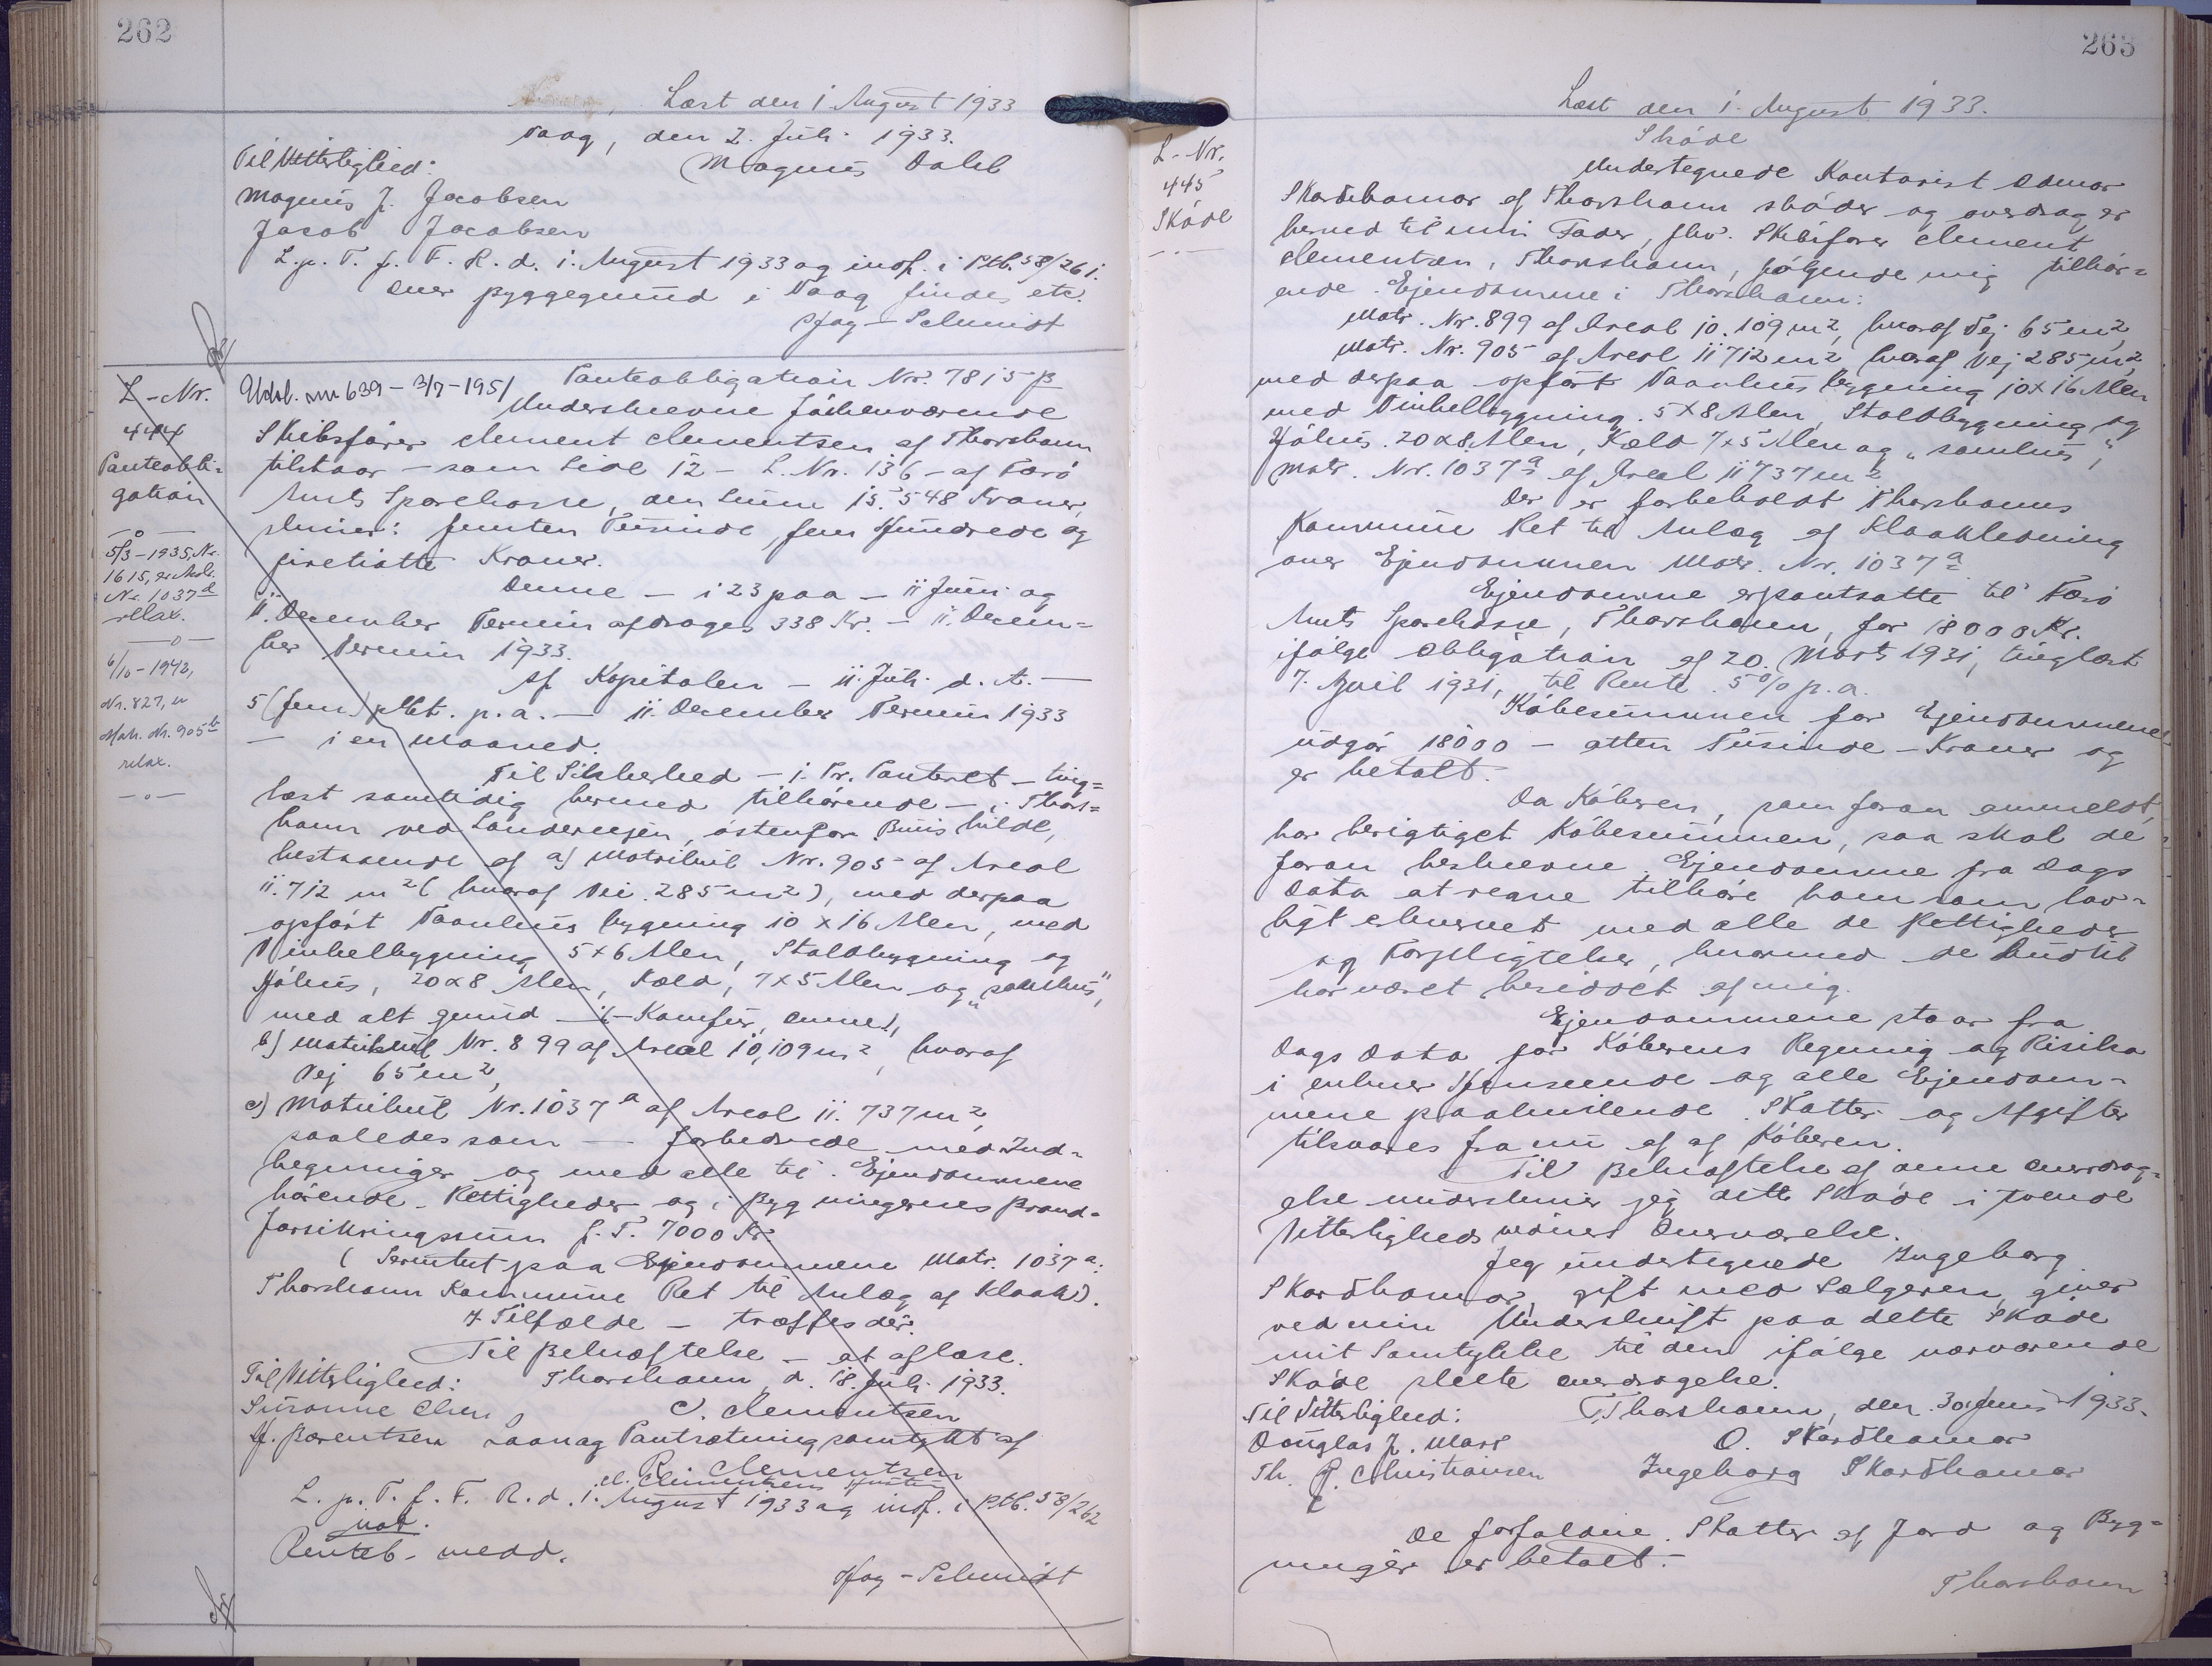 262
Læst den 1 August 1933
Vaag, den 2. Juli 1933.
Til Vitterlighed:
Magnus Dahl
Magnus J. Jacobsen
Jacob Jacobsen
L. p. T. f. F. R. d. 1. August 1933 og indf. i Ptb. 58/261.
Over Byggegrund i Vaag findes etc.
Høg-Schmidt
L-Nr.
444
Panteobli=
gation
—o—
5/3-1935, Nr.
1615, er Matr.
Nr. 1037 d
relax.
—o—
6/10-1942,
Nr. 827, er
Matr. Nr. 905 b
relax.
—o—
Udsl. nr 639 - 3/7-1951
Panteobligation Nr. 7815 β
Underskrevne fhv.
Skibsfører Clement Clementsen af Thorshavn
tilstaar – som Side 12 – L. Nr. 136 – af Færø
Amts Sparekasse, den Sum 15.548 Kroner,
skriver: femten Tusinde, fem Hundrede og
firetiotte Kroner.
Denne – i 23 paa – 11 Juni og
11. December Termin afdrages 338 Kr. – 11. Decem=
ber Termin 1933.
Af Kapitalen – 11. Juli d. A. –
5 (fem) pCt. p. a. – 11. December Termin 1933
– i en Maaned.
Til Sikkerhed – i. Pr. Panteret – ting=
læst samtidig hermed tilhørende – i Thors=
havn ved Landevejen, østenfor
bestaaende af a) Matrikul Nr. 905 af Areal
11.712 m² (hvoraf Vei 285 m²), med derpaa
opført Vaanhus bygning 10 x 16 Alen, med
Vinkelbygning 5 x 6 Alen, Staldbygning og
Hjøhus, 20 x 8 Alen, Kæld, 7 x 5 Alen og
med alt grund – i – Komfur, ovne),
b) Matrikul Nr. 899 af Areal 10,109 m², hvoraf
Vej 65 m²,
c) Matrikul Nr. 1037 a af Areal 11.737 m²,
saaledes som – forbedrede med Ind=
hegninger og med alle til Ejendommene
hørende Rettigheder og i Bygningernes Brand=
forsikringssum f. T. 7000 Kr.
(Servitut paa Ejendommene Matr. 1037 a:
Thorshavn Kommune Ret til Anlæg af Kloak).
I Tilfælde – træffes der.
Til Bekræftelse – at aflæse.
Til Vitterlighed:
Thorshavn, d. 18. Juli 1933.
Susanne Olsen
C. Clementsen
H. Barentsen
Laan og Pantsætning samtykt af
R. Clementsen
Cl. Clementsens Hustru
L. p. T. f. F. R. d. 1. August 1933 og indf. i Ptb. 58/262
not.
Renteb. medd.
Høg-Schmidt
263
Læst den 1. August 1933.
L-Nr.
445
Skøde
Skøde
Undertegnede Kontorist Odmar
Skarðhamar af Thorshavn skøder og overdrager
herved til min Fader, fhv. Skibsfører Clement
Clementsen, Thorshavn, følgende mig tilhør=
ende Ejendomme i Thorshavn:
Matr. Nr. 899 af Areal 10.109 m², hvoraf Vej 65 m²,
Matr. Nr. 905 af Areal 11712 m² hvoraf Vej 285 m²,
med derpaa opført Vaanhus bygning 10 x 16 Alen
med Vinkelbygning 5 x 8 Alen, Staldbygning og
Hjøhus 20 x 8 Alen, Kæld 7 x 5 Alen og
Matr. Nr. 1037 a af Areal 11737 m²
Der er forbeholdt Thorshavns
Kommune Ret til Anlæg af Kloakledning
over Ejendommen Matr. Nr. 1037 a
Ejendomme er pantsatte til Færø
Amts Sparekasse, Thorshavn, for 18000 Kr.
ifølge Obligation af 20. Marts 1931, tinglæst
7. April 1931, til Rente 5% p. a.
Købesummen for Ejendommene
udgør 18000 – atten Tusinde – Kroner og
er betalt.
Da Køberen, som foran anmeldt,
har berigtiget Købesummen, saa skal de
foran beskrevne Ejendomme fra Dags
Dato at regne tilhøre ham som lov=
ligt erhvervet med alle de Rettigheder
og Forpligtelser, hvormed de hidtil
har været besiddet af mig.
Ejendommene staar fra
Dags Dato for Køberens Regning og Risiko
i enhver Henseende og alle Ejendom=
mene paahvilende Skatter og Afgifter
tilsvares fra nu af af Køberen.
Til Bekræftelse af denne Overdrag=
else underskriver jeg dette Skøde i tvende
Vitterligheds vidners Overværelse.
Jeg undertegnede Ingeborg
Skarðhamar, gift med Sælgeren, giver
ved min Underskrift paa dette Skøde
mit Samtykke til den ifølge nærværende
Skøde skete Overdragelse.
Til Vitterlighed:
Thorshavn, den 30 Juni 1933.
Douglas J.
O. Skarðhamar
Th. J. Christiansen
Ingeborg Skarðhamar
De forfaldne Skatter af Jord og Byg=
ninger er betalt.
Thorshavn